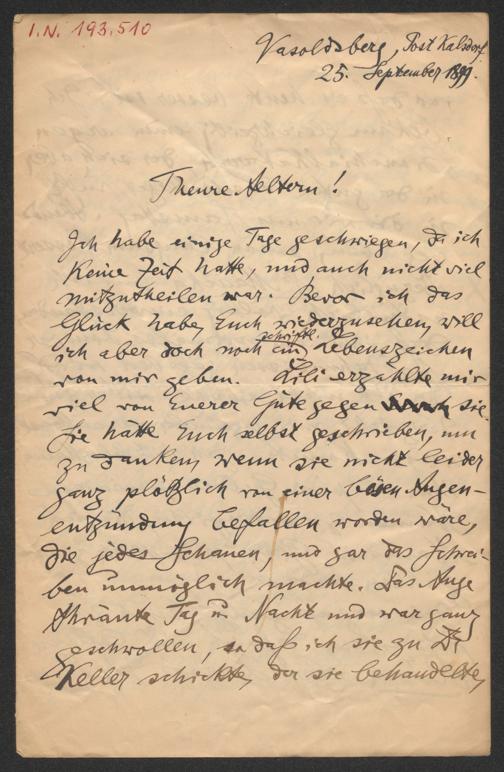 I.N. 193.510
Vasoldsberg, Post Kalsdorf.
25. September 1899.
Theure Aeltern!
Ich habe einige Tage geschwiegen, da ich
keine Zeit hatte, und auch nicht viel
mitzutheilen war. Bevor ich das
Glück habe, Euch wiederzusehen, will
schriftl.
ich aber doch noch ein Lebenszeichen
von mir geben. Lili erzählte mir
viel von Euerer Güte gegen sie.
Sie hätte Euch selbst geschrieben, um
zu danken, wenn sie nicht leider
ganz plötzlich von einer bösen Augen-
entzündung befallen worden wäre,
die jedes Schauen, und gar das Schrei-
ben unmöglich machte. Das Auge
thränte Tag u. Nacht und war ganz
geschwollen, so daß ich sie zu Dr
Keller schickte, der sie behandelte,